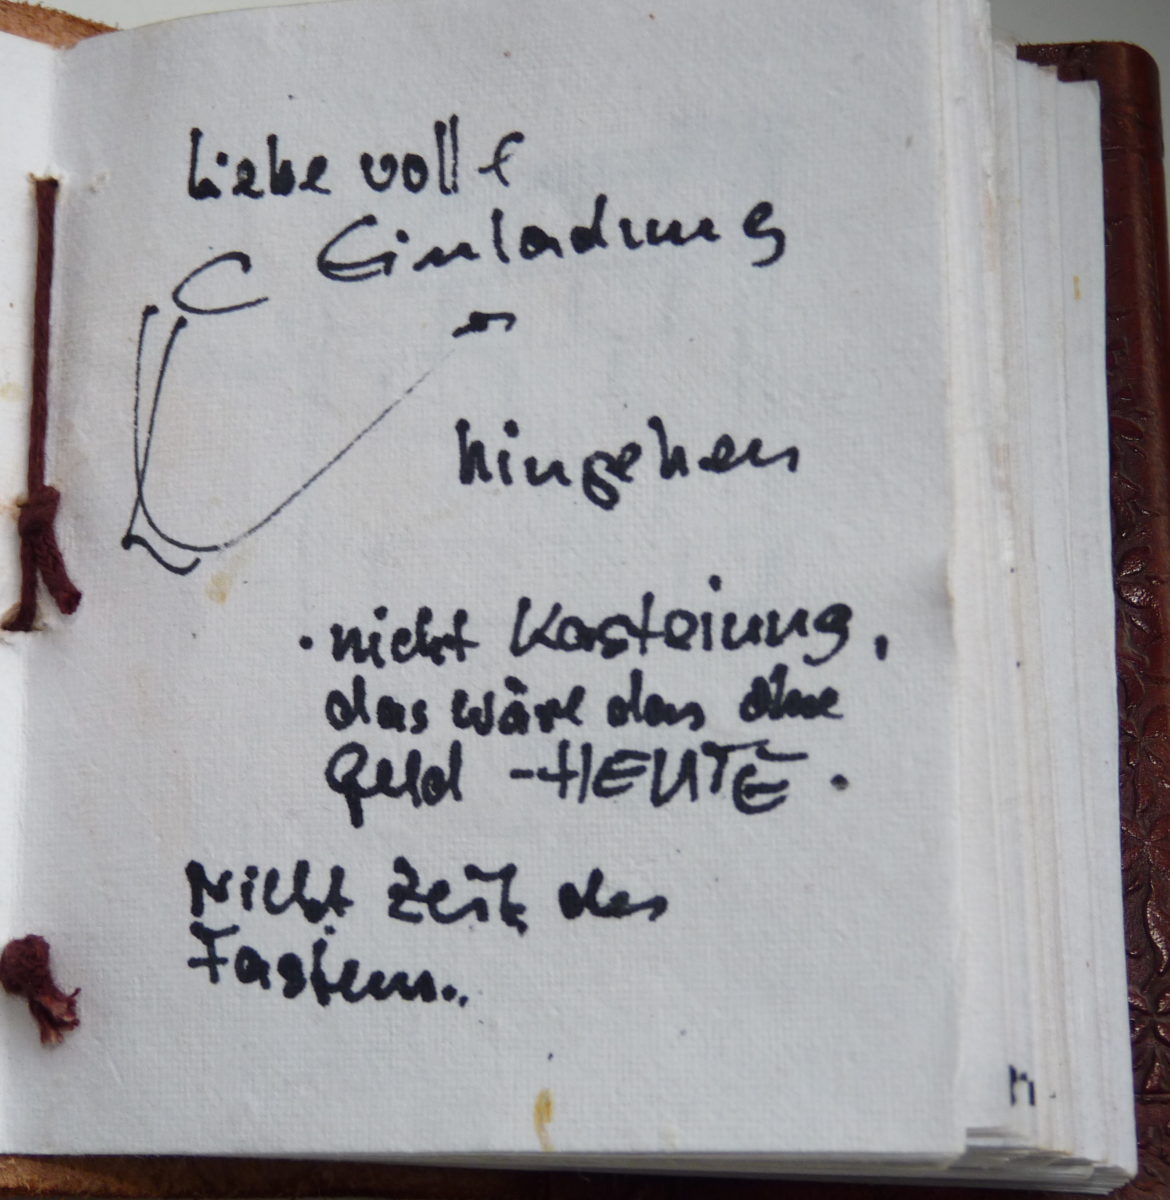 Liebe volle
Einladung
hingehen
· nicht Kasteiung,
das wäre das ohne
Geld - HEUTE.
Nicht Zeit des
Fastens..